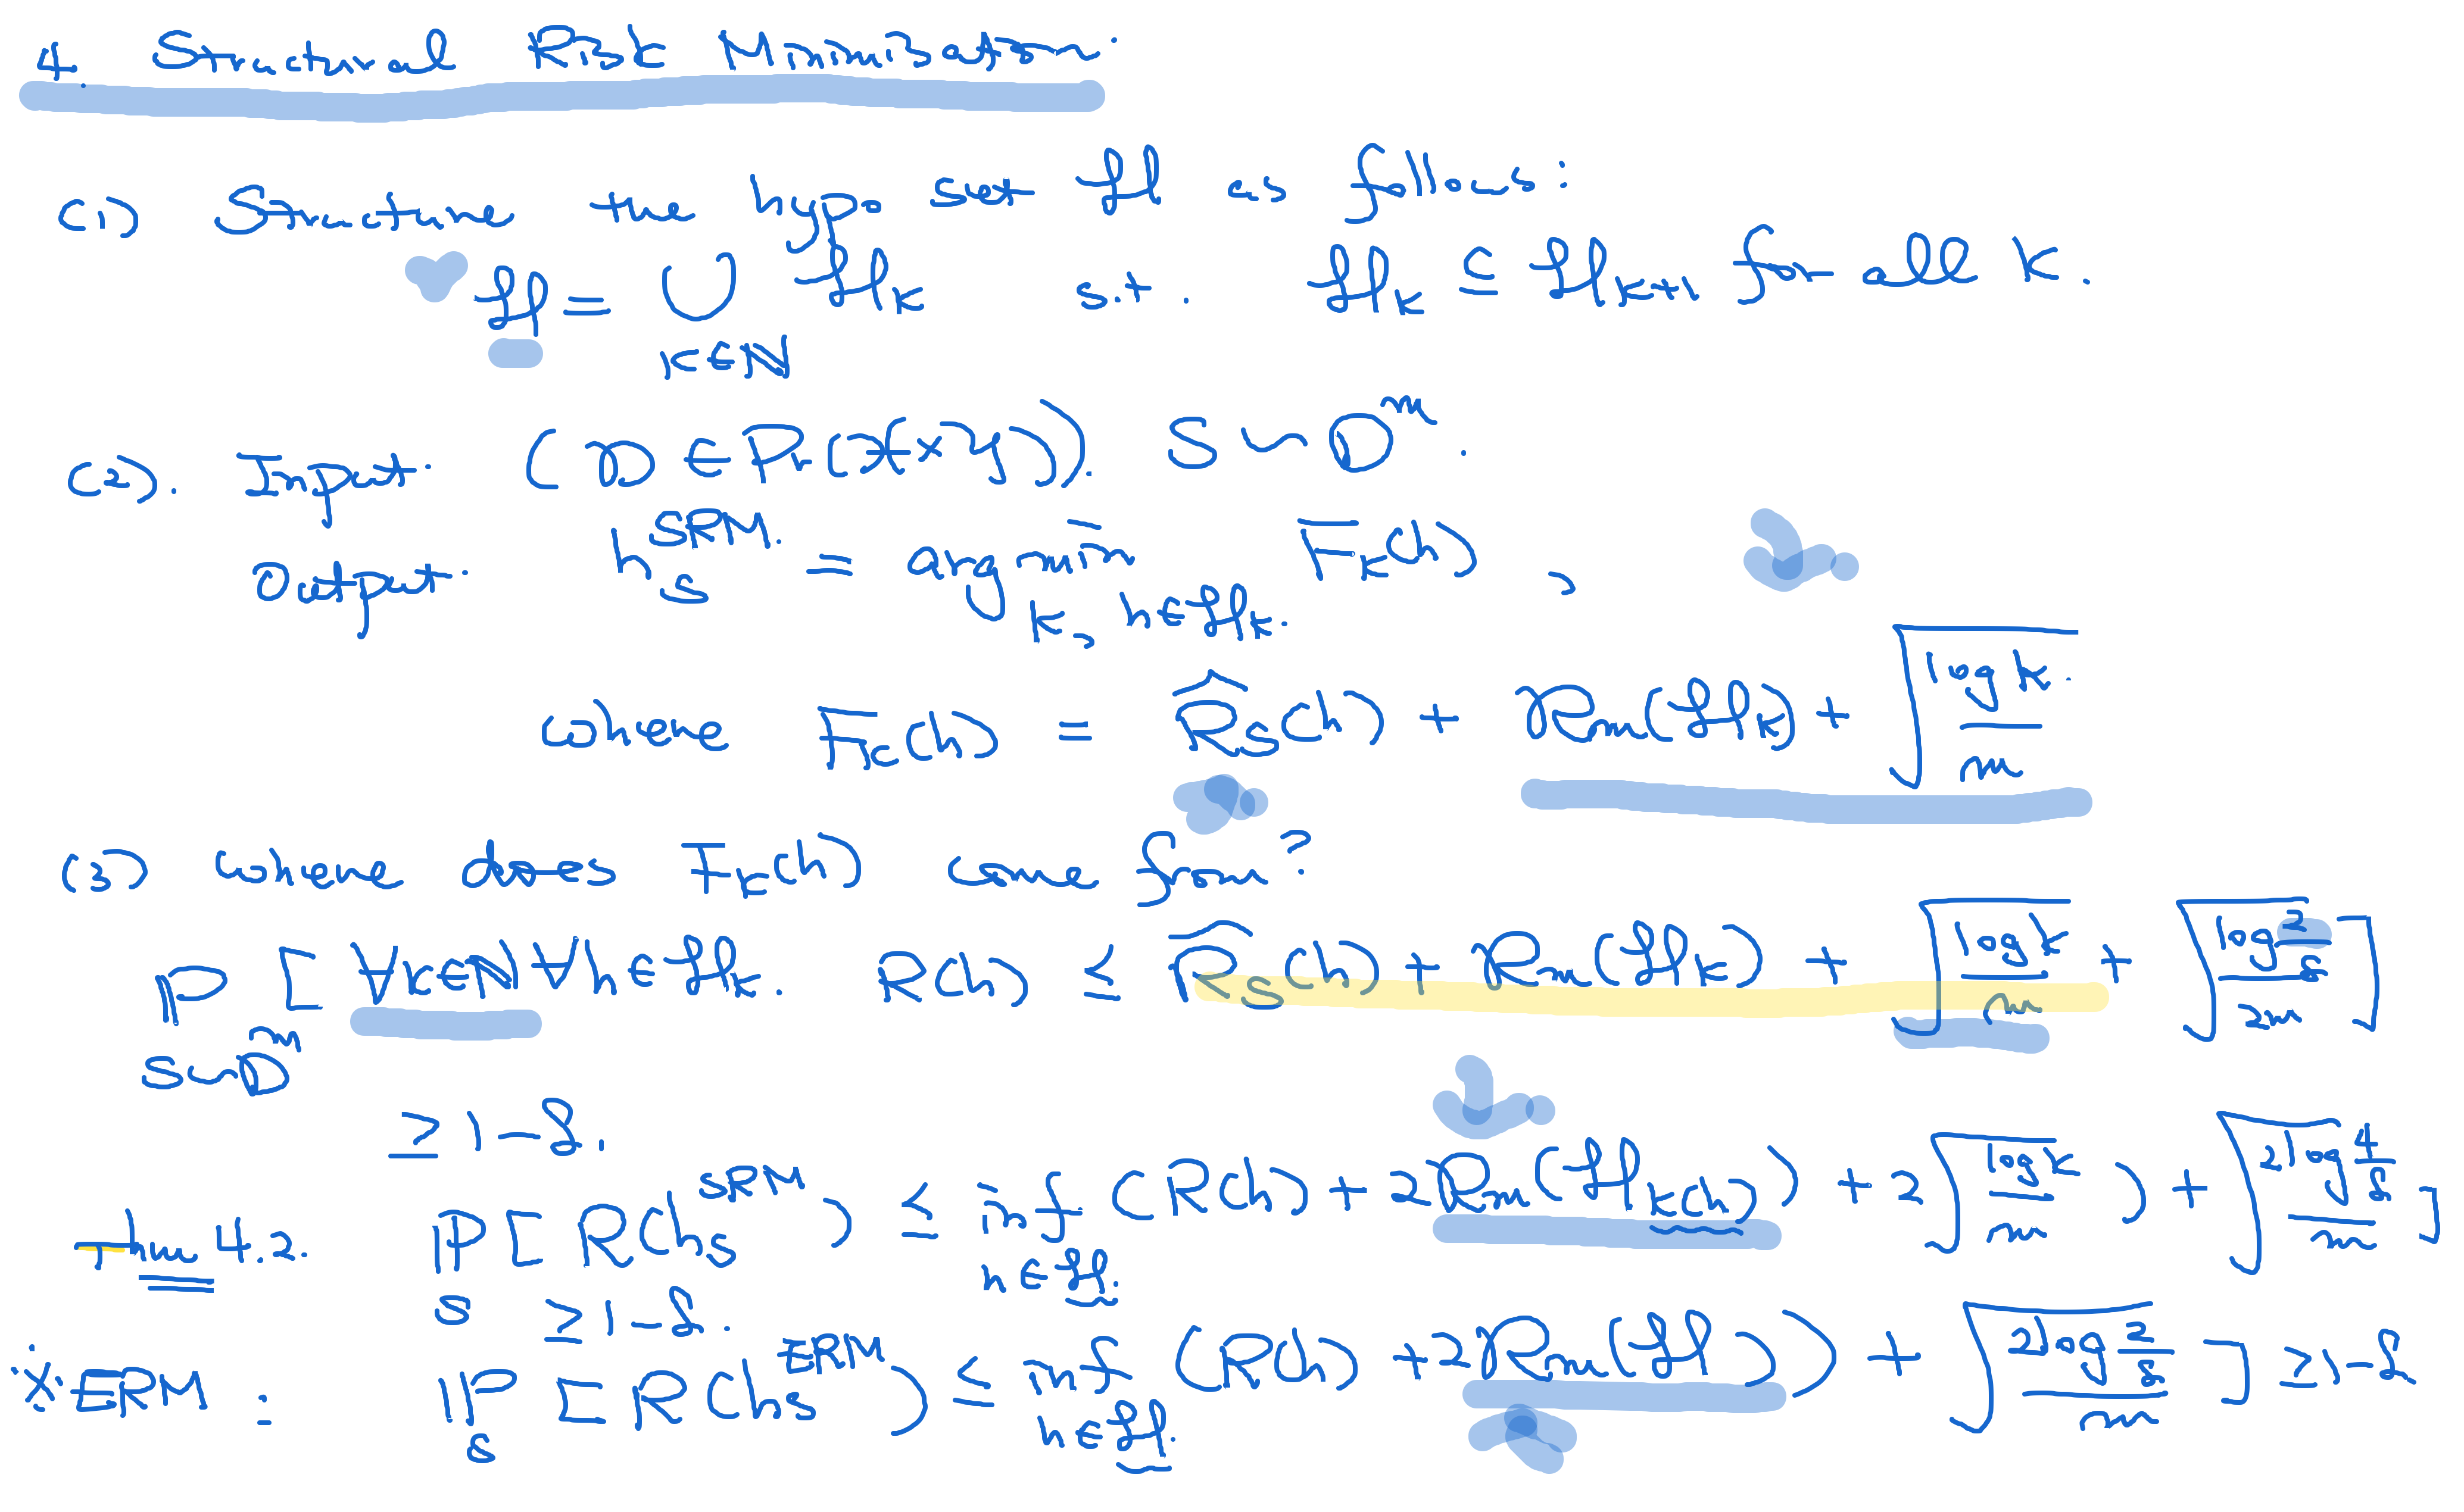 4. Structural Risk Minimisation.
(1) Structure the hypo set ℋ as follows:
ℋ = ⋃_{k∈ℕ} ℋ_k s.t. ℋ_k ⊆ ℋ_{k+1} for all k.
(2). Input. (D ∈ Pr(X×Y)). S ~ D^m.
Output. h_S^{SRM.} = argmin_{k, h∈ℋ_k.} F_k(h) ,
where F_k(h) = R̂_S(h) + R_m(ℋ_k) + √(log k. / m)
(3) where does F_k(h) come from?
P_{S~D^m} [ ∀k∈ℕ ∀h∈ℋ_k. R(h) ≤ R̂_S(h) + R_m(ℋ_k) + √(log k / m) + √(log 2/δ / 2m) ]
≥ 1-δ.
Thm 4.2. P_S [ R(h_S^{SRM}) ≤ inf_{h∈ℋ.} (R(h) + 2R_m(ℋ_{k(h)}) + 2√(log k / m)) + √(2 log 4/δ / m) ]
≥ 1-δ.
※ ERM : P_S [ R(h_S^{ERM}) ≤ inf_{h∈ℋ.} (R(h) + 2R_m(ℋ)) + √(2 log 2/δ / m) ] ≥ 1-δ.